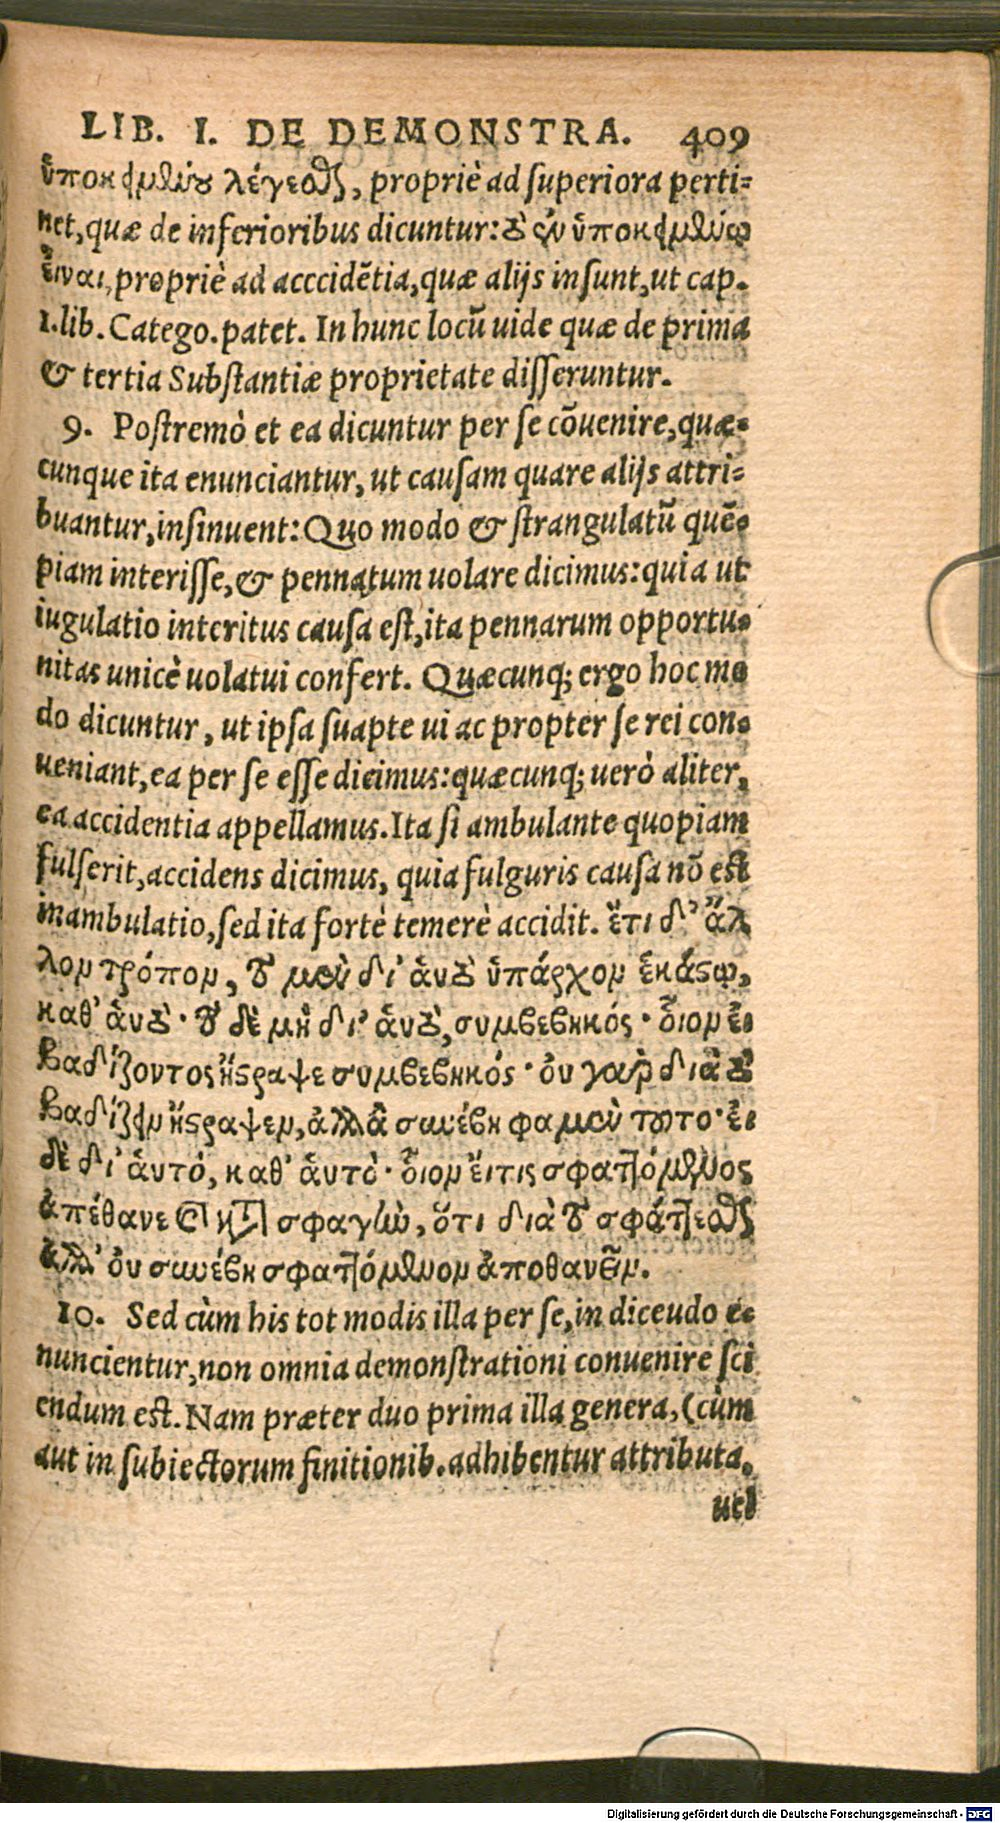 LIB. I. DE DEMONSTRA. 409
ὑποκειμένου λέγεσθαι, propriè ad ſuperiora perti=
net, quæ de inferioribus dicuntur: τὸ ἐν ὑποκειμένῳ
εἶναι, propriè ad acccidētia, quæ alijs inſunt, ut cap.
1. lib. Catego. patet. In hunc locū uide quæ de prima
& tertia Subſtantiæ proprietate diſſeruntur.
9. Poſtremò et ea dicuntur per ſe cōuenire, quæ=
cunque ita enunciantur, ut cauſam quare alijs attri=
buantur, inſinuent: Quo modo & ſtrangulatū quē=
piam interiſſe, & pennatum uolare dicimus: quia ut
iugulatio interitus cauſa eſt, ita pennarum opportu=
nitas unicè uolatui confert. Quæcunq; ergo hoc mo
do dicuntur, ut ipſa ſuapte ui ac propter ſe rei con=
ueniant, ea per ſe eſſe dicimus: quæcunq; uerò aliter,
ea accidentia appellamus. Ita ſi ambulante quopiam
fulſerit, accidens dicimus, quia fulguris cauſa nō eſt
inambulatio, ſed ita fortè temerè accidit. ἔτι δ' ἄλ
λον τρόπον, τὸ μὲν δι' ἁυτὸ ὑπάρχον ἑκάστῳ,
καθ' ἁυτὸ· τὸ δὲ μὴ δι' ἁυτὸ, συμβεβηκός· ὃιον ἐι
βαδίζοντος ἤστραψε συμβεβηκός· ὀυ γὰρ διὰ τὸ
βαδίζειν ἤστραψεν, ἀλλὰ συνέβη φαμὲν τοῦτο· ἐι
δὲ δι' ἁυτό, καθ' ἁυτὸ· ὃιον ἔιτις σφαττόμενος
ἀπέθανε καὶ κατὰ σφαγὼ, ὅτι διὰ τὸ σφάττεσθαι
ἀλλ' ὀυ συνέβη σφαττόμενον ἀποθανεῖν.
10. Sed cùm his tot modis illa per ſe, in diceudo e=
nuncientur, non omnia demonſtrationi conuenire ſci
endum eſt. Nam præter duo prima illa genera, (cùm
aut in ſubiectorum finitionib. adhibentur attributa,
uel
Digitalisierung gefördert durch die Deutsche Forschungsgemeinschaft - DFG